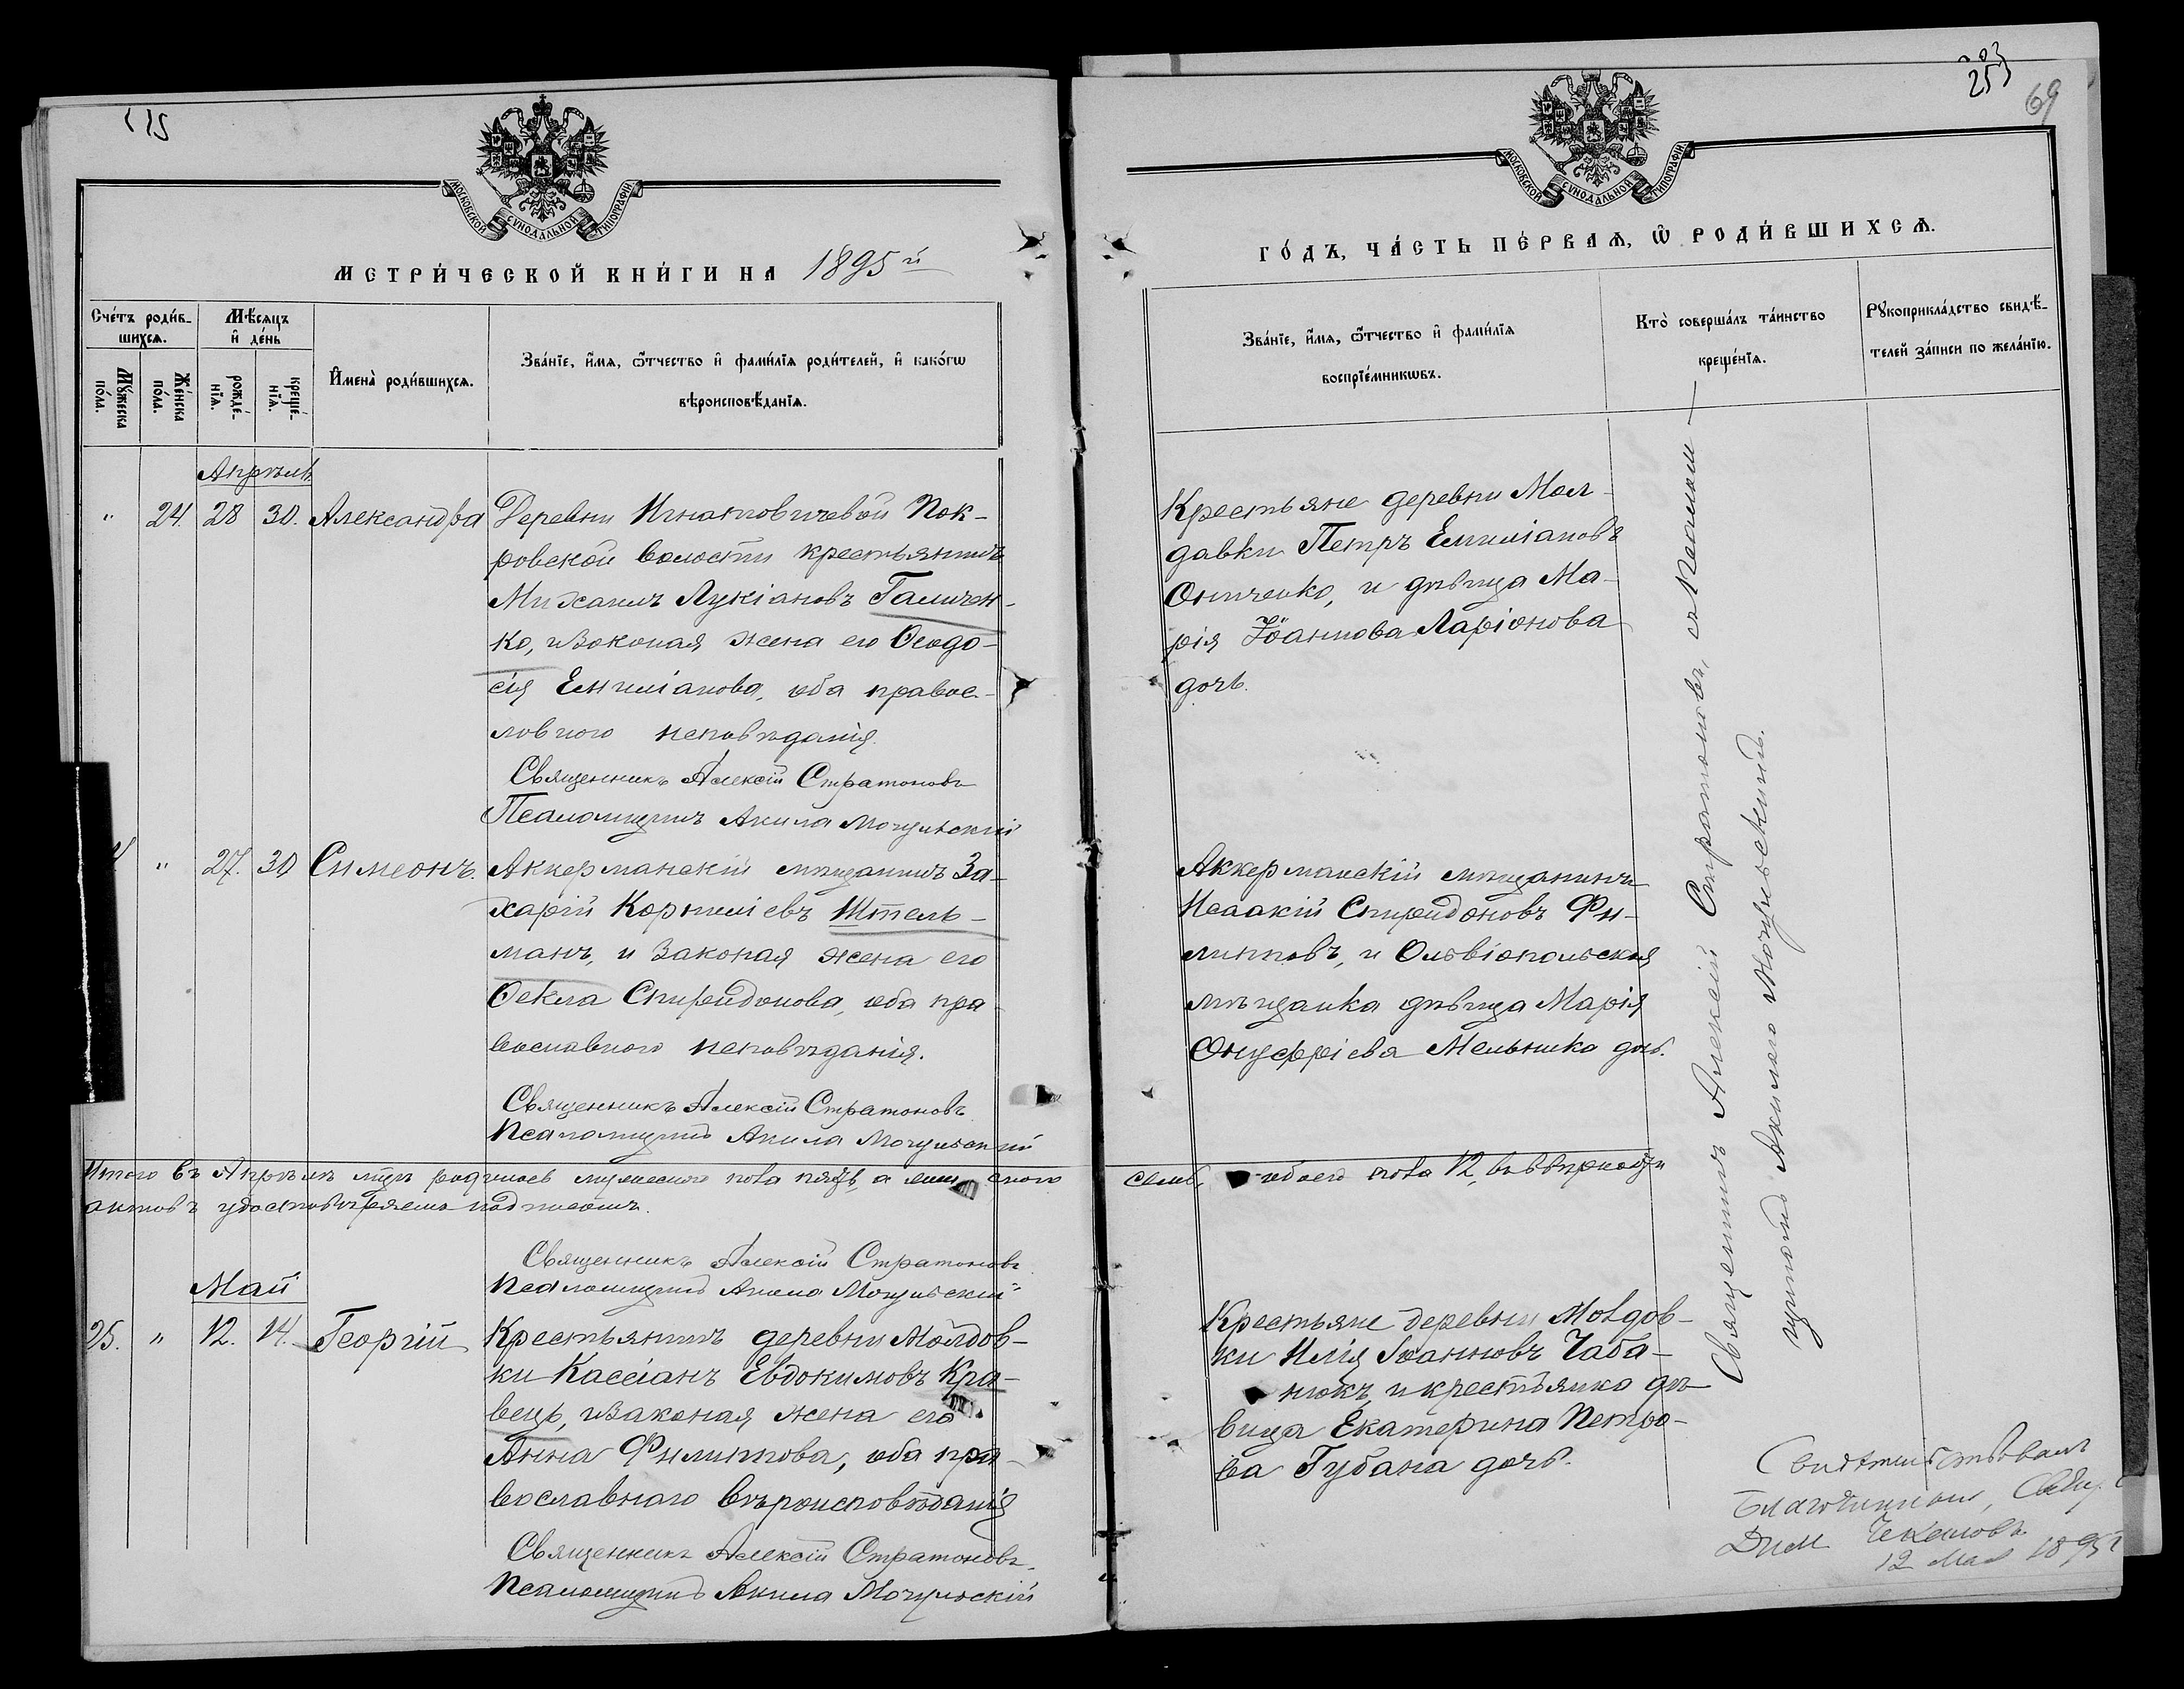 115
МОСКОВСКОЙ СѴНОДАЛЬНОЙ ТИПОГРАФІИ
МЕТРИ́ЧЕСКОЙ КНИ́ГИ НА 1895й
Сче́тъ роди́в-
шихсѧ.
Мѣ́сѧцъ
и҆ де́нь
Мꙋ́жеска
по́ла.
Же́нска
по́ла.
рожде́-
нїѧ.
креще́-
нїѧ.
И҆мена̀ роди́вшихсѧ.
Зва́нїе, и҆́мѧ, ѻ҆́тчество и҆ фамилі́ѧ роди́телей, и҆ како́гѡ
вѣроисповѣ́данїѧ.
Апрѣль
" 24. 28 30. Александра
Деревни Игнатовичевой Пок-
ровской волости крестьянинъ
Михаилъ Лукіановъ Галичен-
ко, и законая жена его Ѳеодо-
сія Емиліанова, оба правос-
лов ного исповѣданія.
Священникъ Алексій Стратоновъ
Псаломщикъ Акила Могульскій
" 27. 30 Симеонъ.
Аккерманскій мѣщанинъ За-
харій Корниліевъ Штель-
манъ, и законая жена его
Ѳекла Спиридонова, оба пра-
вославного исповѣданія.
Священникъ Алексій Стратоновъ
Псаломщикъ Акила Могульскій
Итого въ Апрѣлѣ мцѣ родилось мужеского пола пять, а женского
актовъ удостовѣряемъ подписомъ.
Священникъ Алексій Стратоновъ
Псаломщикъ Акила Могульскій
Май
25. " 12. 14. Георгій
Крестьянинъ деревни Молдов-
ки Кассіанъ Евдокимовъ Кра-
вецъ, и законая жена его
Анна Филиппова, оба пра-
вославнаго вѣроисповѣданія
Священникъ Алексій Стратоновъ
Псаломщикъ Акила Могульскій
253
69
МОСКОВСКОЙ СѴНОДАЛЬНОЙ ТИПОГРАФІИ
ГО́ДЪ, ЧА́СТЬ ПЕ́РВАѦ, Ѽ РОДИ́ВШИХСѦ.
Зва́нїе, и҆́мѧ, ѻ҆́тчество и҆ фамилі́ѧ
воспрїе́мникѡвъ.
Кто̀ соверша́лъ та́инство
креще́нїѧ.
Рꙋкоприкла́дство свидѣ́-
телей за́писи по жела́нїю.
Крестьяне деревни Мол-
давки Петръ Емиліановъ
Онищенко, и дѣвица Ма-
рія Іоаннова Ларіонова
дочь.
Аккерманскій мѣщанинъ
Исаакій Спиридоновъ Фи-
липповъ, и Ольвіопольская
мѣщанка дѣвица Марія
Онуфріева Мельника дочь.
семь, обоего пола 12, въ вѣрности
Крестьяне деревни Молдов-
ки Илія Іоанновъ Чаба-
нюкъ и крестьянка дѣ-
вица Екатерина Петро-
ва Губана дочь.
Священникъ Алексій Стратоновъ, съ Псалом-
щикомъ Акилою Могульскимъ.
Свидетельствовалъ
Благочинный, Свящ.
Дим. Чекановъ
12 Мая 1895 г